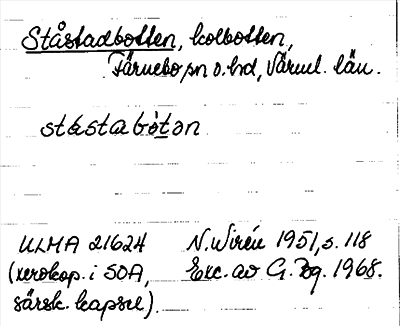 Ståstadbotten, kolbotten,
Färnebo sn o. hd, Värml. län.
stástabòtən
ULMA 21624 N. Wirén 1951, s. 118
(xerokop. i SOA, Exc. av G. Bg. 1968.
särsk. kapsel).